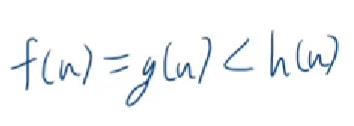 f(n) = g(n) < h(n)